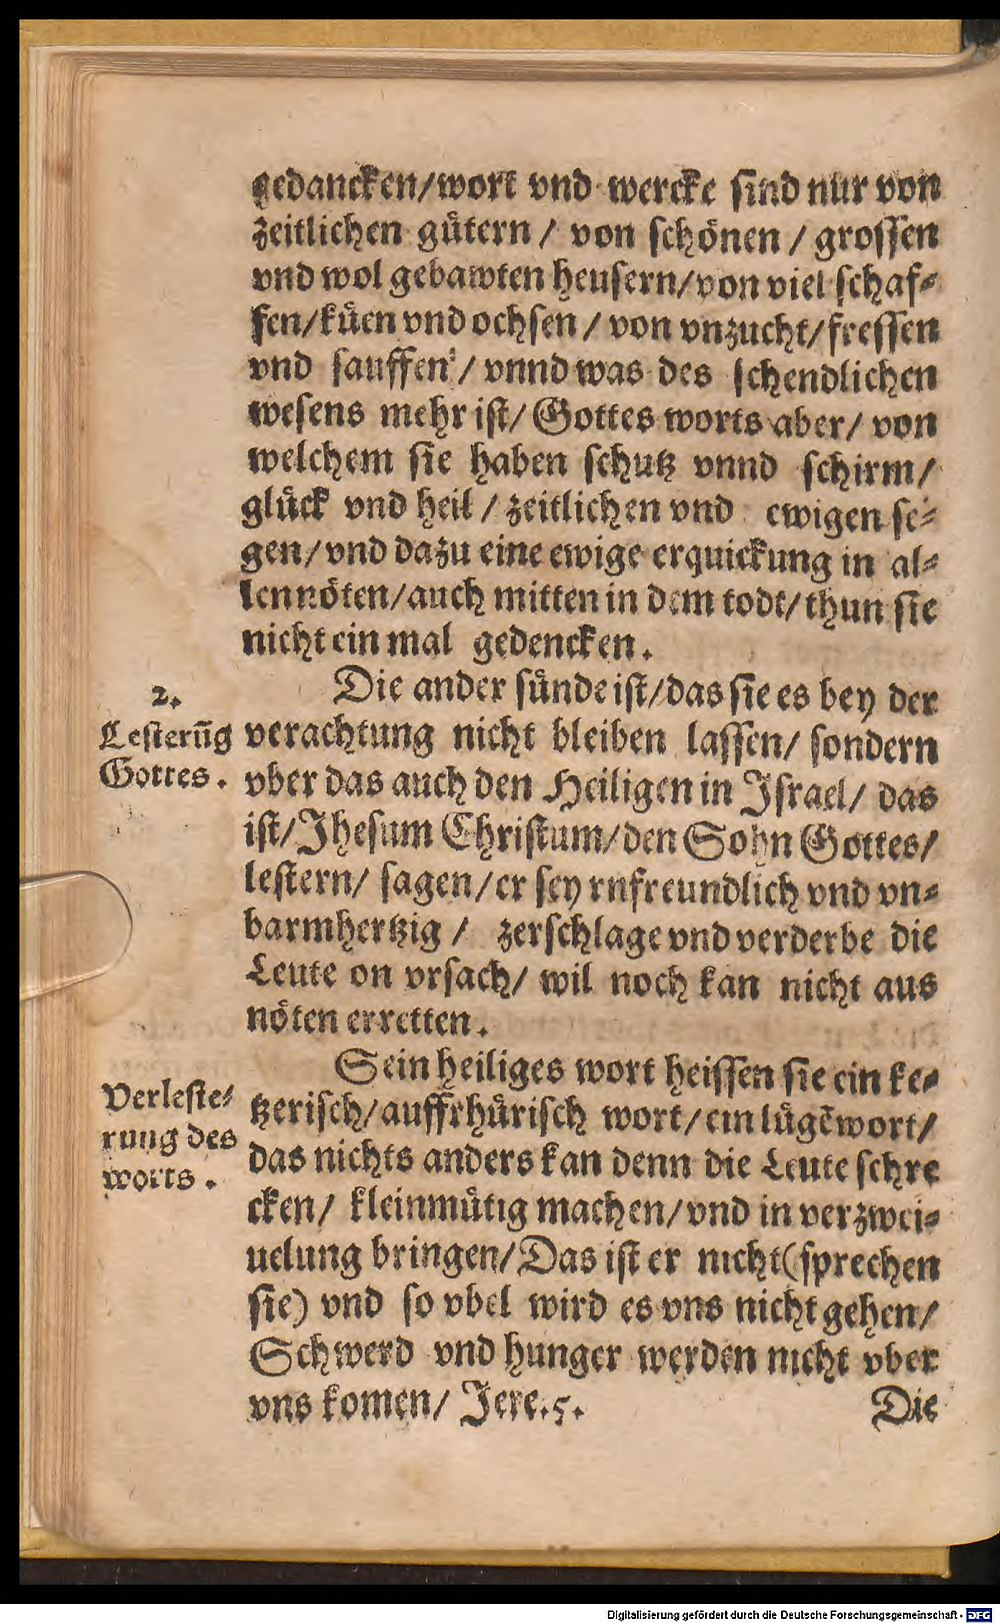 gedancken/wort vnd wercke sind nur von
zeitlichen guͤtern / von schoͤnen / grossen
vnd wol gebawten heusern/von viel schaf⸗
fen/kuͤen vnd ochsen / von vnzucht/fressen
vnd sauffen / vnnd was des schendlichen
wesens mehr ist/ Gottes worts aber/ von
welchem sie haben schutz vnnd schirm/
gluͤck vnd heil / zeitlichen vnd ewigen se⸗
gen/vnd dazu eine ewige erquickung in al⸗
len noͤten/auch mitten in dem todt/thun sie
nicht ein mal gedencken.
2.
Lesterūg
Gottes.
Die ander suͤnde ist/das sie es bey der
verachtung nicht bleiben lassen/ sondern
vber das auch den Heiligen in Israel/ das
ist/Jhesum Christum/den Sohn Gottes/
lestern/ sagen/er sey vnfreundlich vnd vn⸗
barmhertzig / zerschlage vnd verderbe die
Leute on vrsach/ wil noch kan nicht aus
noͤten erretten.
Verleste⸗
rung des
worts.
Sein heiliges wort heissen sie ein ke⸗
tzerisch/auffrhuͤrisch wort/ein luͤgēwort/
das nichts anders kan denn die Leute schre
cken/ kleinmuͤtig machen/vnd in verzwei⸗
uelung bringen/Das ist er nicht(sprechen
sie) vnd so vbel wird es vns nicht gehen/
Schwerd vnd hunger werden nicht vber
vns komen/ Jere.5.
Die
Digitalisierung gefördert durch die Deutsche Forschungsgemeinschaft - DFG